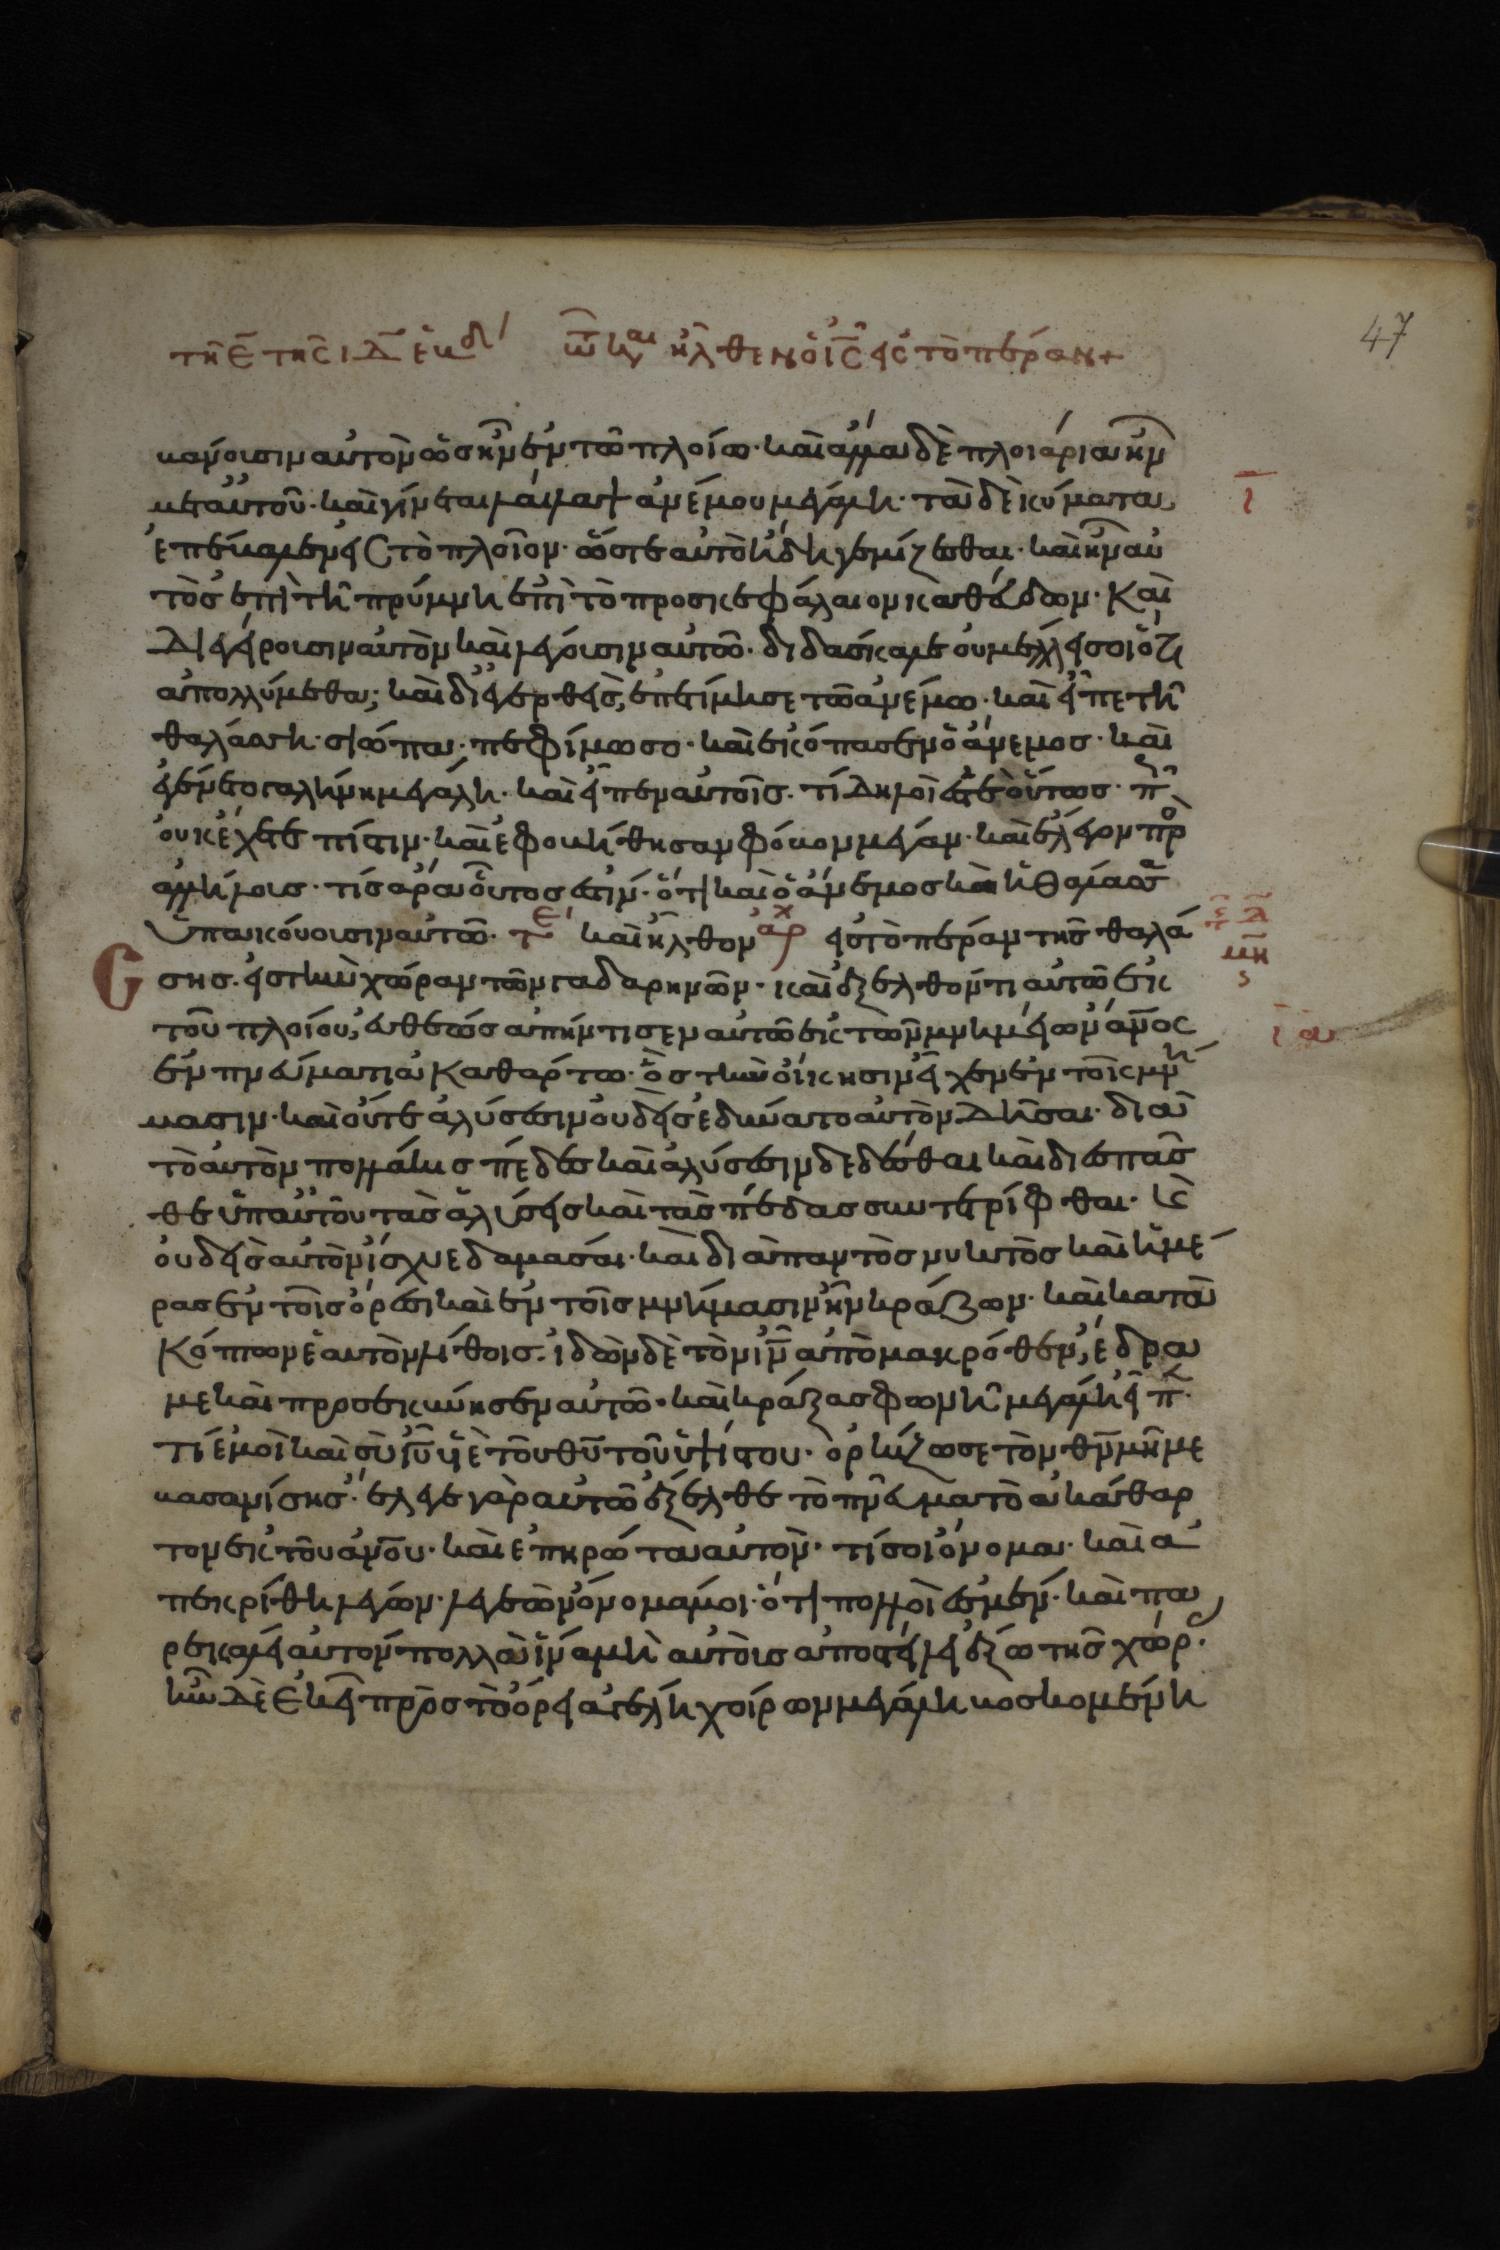 47
τῆ ε̄ τῆς ιδ̄ ἑβδ τῶ κ αι ἦλθεν ὁ ις εἰς τὸ πέραν +
βάνουσιν αὐτὸν ὡς ἦν ἐν τῶ πλοίω· καὶ ἄλλα δὲ πλοιάρια ἦν
μετ αὐτοῦ· καὶ γίνεται λαίλαψ ἀνέμου μεγάλη· τὰ δὲ κύματα
ἐπέβαλεν εἰς τὸ πλοῖον· ὥστε αὐτὸ ἤδη γεμίζεσθαι· καὶ ἦν αὐ
τὸς ἐπὶ τῆ πρύμνη ἐπὶ τὸ προσκεφάλαιον καθεύδων· Καὶ
διεγείρουσιν αὐτὸν καὶ λέγουσιν αὐτῶ· διδάσκαλε οὐ μέλλει σοι ὅτι
ἀπολλύμεθα; καὶ διεγερθεὶς, ἐπετίμησε τῶ ἀνέμω· καὶ εἶπε τῆ
θαλάσση· σιώπα· πεφίμωσο· καὶ ἐκόπασεν ὁ ἄνεμος· καὶ
ἐγένετο γαλήνη μεγάλη· καὶ εἶπεν αὐτοῖς· τί δηλοί ἐστε οὕτως· π
οὐκ ἔχετε πίστιν· καὶ ἐφοβήθησαν φόβον μέγαν· καὶ ἔλεγον πρ
ἀλλήλους· τίς ἄρα οὗτος ἐστίν· ὅτι καὶ ὁ ἄνεμος καὶ ἡ θάλασσα
ὑπακούουσιν αὐτῶ· τε καὶ ἦλθον αρχ εἰς τὸ πέραν τῆς θαλά
σσης· εἰς τὴν χώραν τῶν γαδαρηνῶν· καὶ ἐξελθόντι αὐτῶ ἐκ
τοῦ πλοίου, εὐθέως ἀπήντησεν αὐτῶ ἐκ τῶν μνημείων ανος
ἐν πνεύματι ἀκαθάρτω· ὃς τὴν οἴκησιν εἶχεν ἐν τοῖς μνή
μασιν· καὶ οὔτε ἁλύσεσιν οὐδεὶς ἐδύνατο αὐτὸν δῆσαι· διὰ
τὸ αὐτὸν πολλάκις πέδες καὶ ἁλύσεσιν δεδέσθαι καὶ διεσπᾶσ
θε ὑπ αὐτοῦ τὰς ἁλύσεις καὶ τὰς πέδας συντετρίφθαι· κ
οὐδεὶς αὐτὸν ἴσχυε δαμάσαι· καὶ διαπαντὸς νυκτὸς καὶ ἡμέ
ρας ἐν τοῖς ὄρεσι καὶ ἐν τοῖς μνήμασιν ἦν κράζων· καὶ κατα
κόπτων ἑαυτὸν λίθοις· ἰδὼν δὲ τὸν ιν ἀπὸ μακρόθεν, ἔδρα
με καὶ προσεκύνησεν αὐτῶ· καὶ κράξας φωνῆ μεγάλη εἶπ·
τί ἐμοὶ καὶ σὺ ιυ υἱὲ τοῦ θυ τοῦ ὑψίστου· ὁρκίζω σε τὸν θν μή με
βασανίσης· ἔλεγε γὰρ αὐτῶ ἔξελθε τὸ πνεῦμα τὸ ἀκάθαρ
τον ἐκ τοῦ ανου· καὶ ἐπηρώτα αὐτὸν· τί σοι ὄνομα· καὶ ἀ
πεκρίθη λέγων· λεγεὼν ὄνομά μοι· ὅτι πολλοί ἐσμεν· καὶ πα
ρεκάλει αὐτὸν πολλὰ ἵνα μὴ αὐτοὺς ἀποστείλη ἔξω τῆς χώρ·
ἦν δὲ ἐκεῖ πρὸς τὸ ὄρει ἀγέλη χοίρων μεγάλη βοσκομένη
ῑ
μη
ς
ῑα